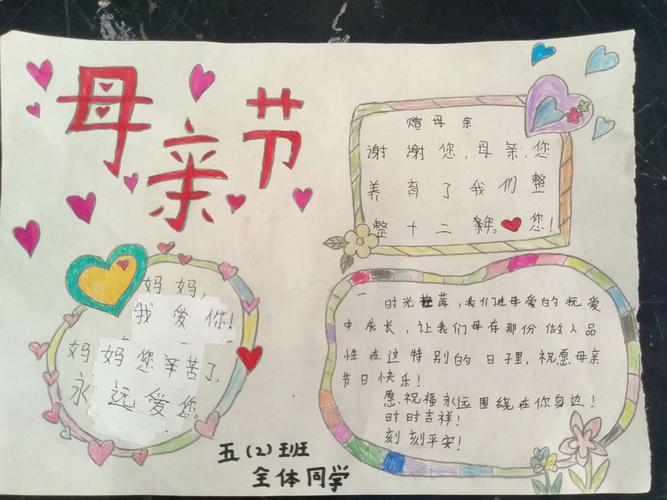 母亲节
赠母亲
谢谢您,母亲,您
养育了我们整
整十二年。❤您!
妈妈,
我爱你!
妈妈您辛苦了,
永远爱您。
时光荏苒,我们在母爱的抚爱
中成长,让我们母存那份做人品
性在这特别的日子里,祝愿母亲
节日快乐!
愿祝福永远围绕在你身边!
时时吉祥!
刻刻平安!
五(2)班
全体同学